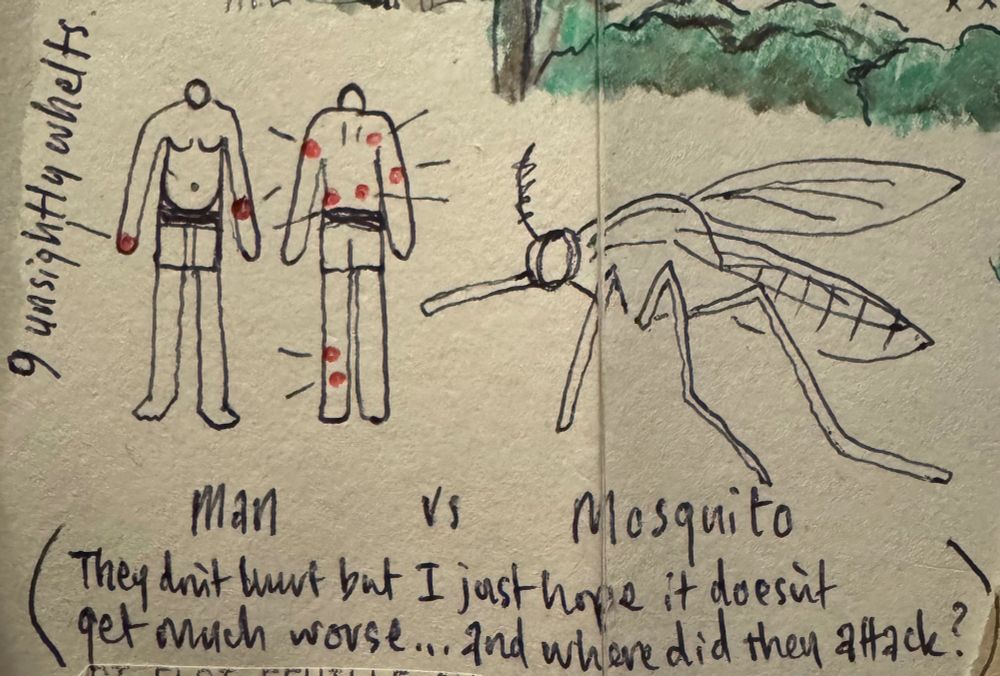 9 unsightly whelts
Man vs Mosquito
(They don't hurt but I just hope it doesn't
get much worse... and where did they attack?)